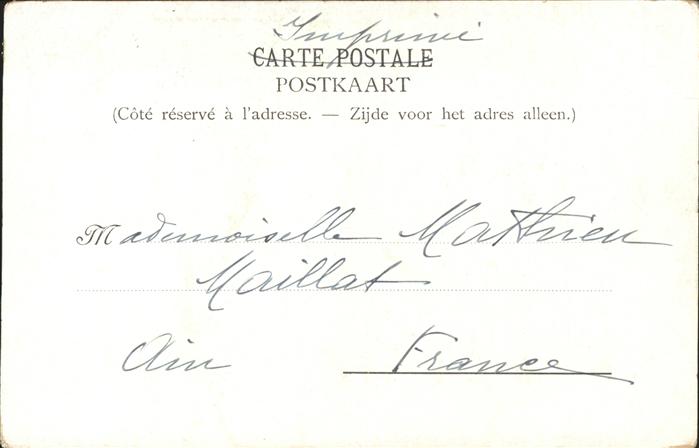 Imprimé
CARTE POSTALE
POSTKAART
(Côté réservé à l'adresse. — Zijde voor het adres alleen.)
Mademoiselle Mathieu
Maillat
Ain France